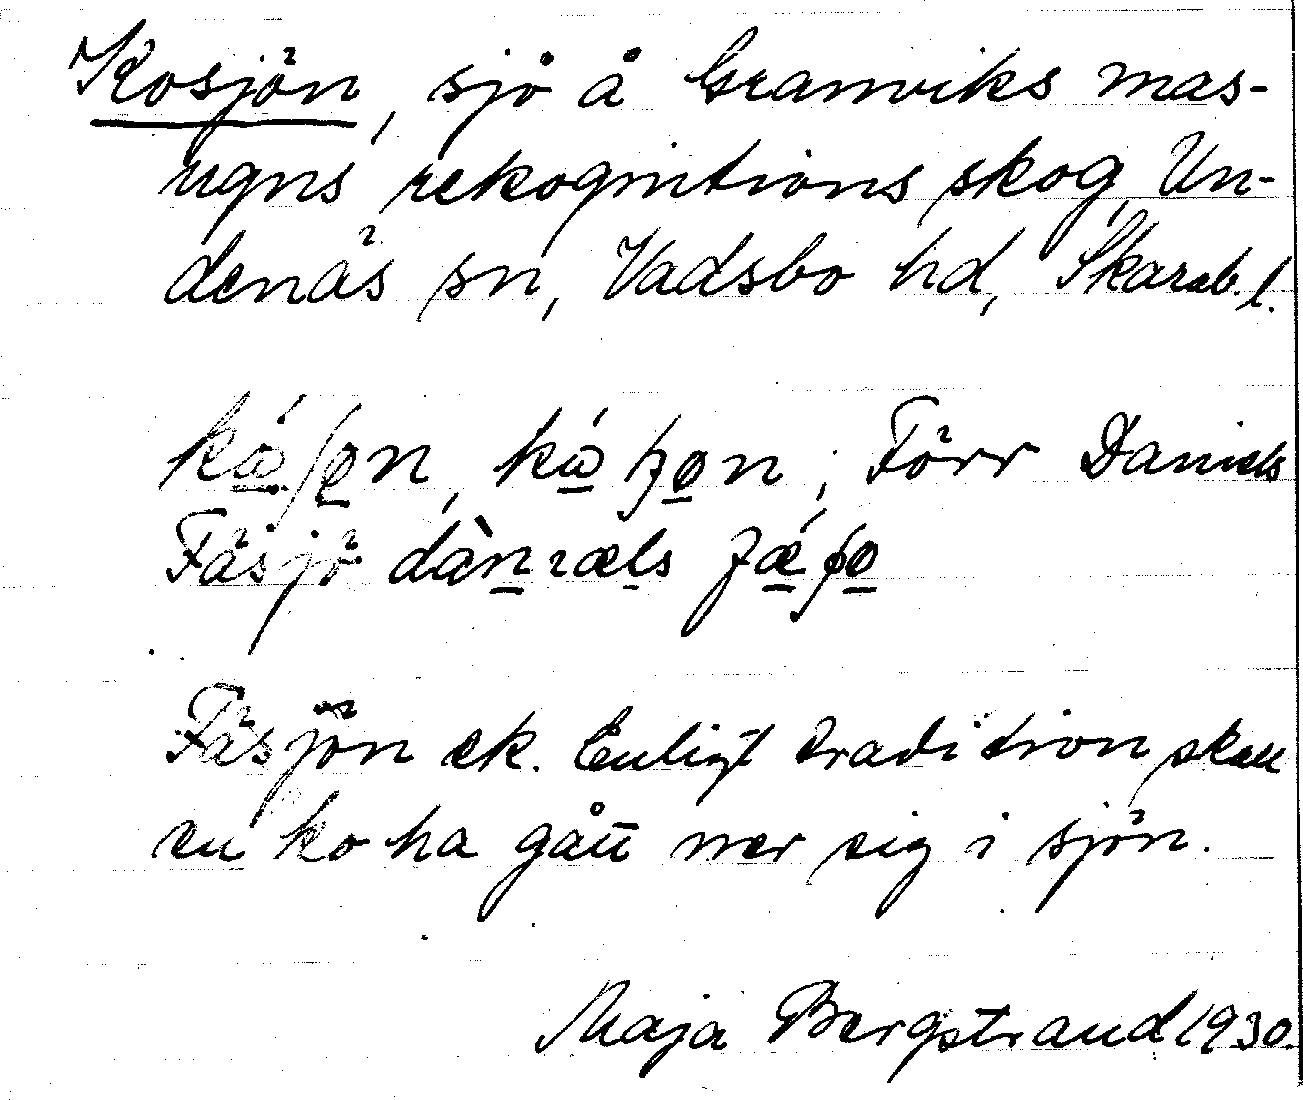 Kosjön, sjö å Granviks mas-
ugns rekognitions skog, Un-
denäs sn, Vadsbo hd, Skarab. l.
Förr Daniels
Fäsjö
Fäsjön ek. Enligt tradition skall
en ko ha gått ner sig i sjön.
Maja Bergstrand 1930.